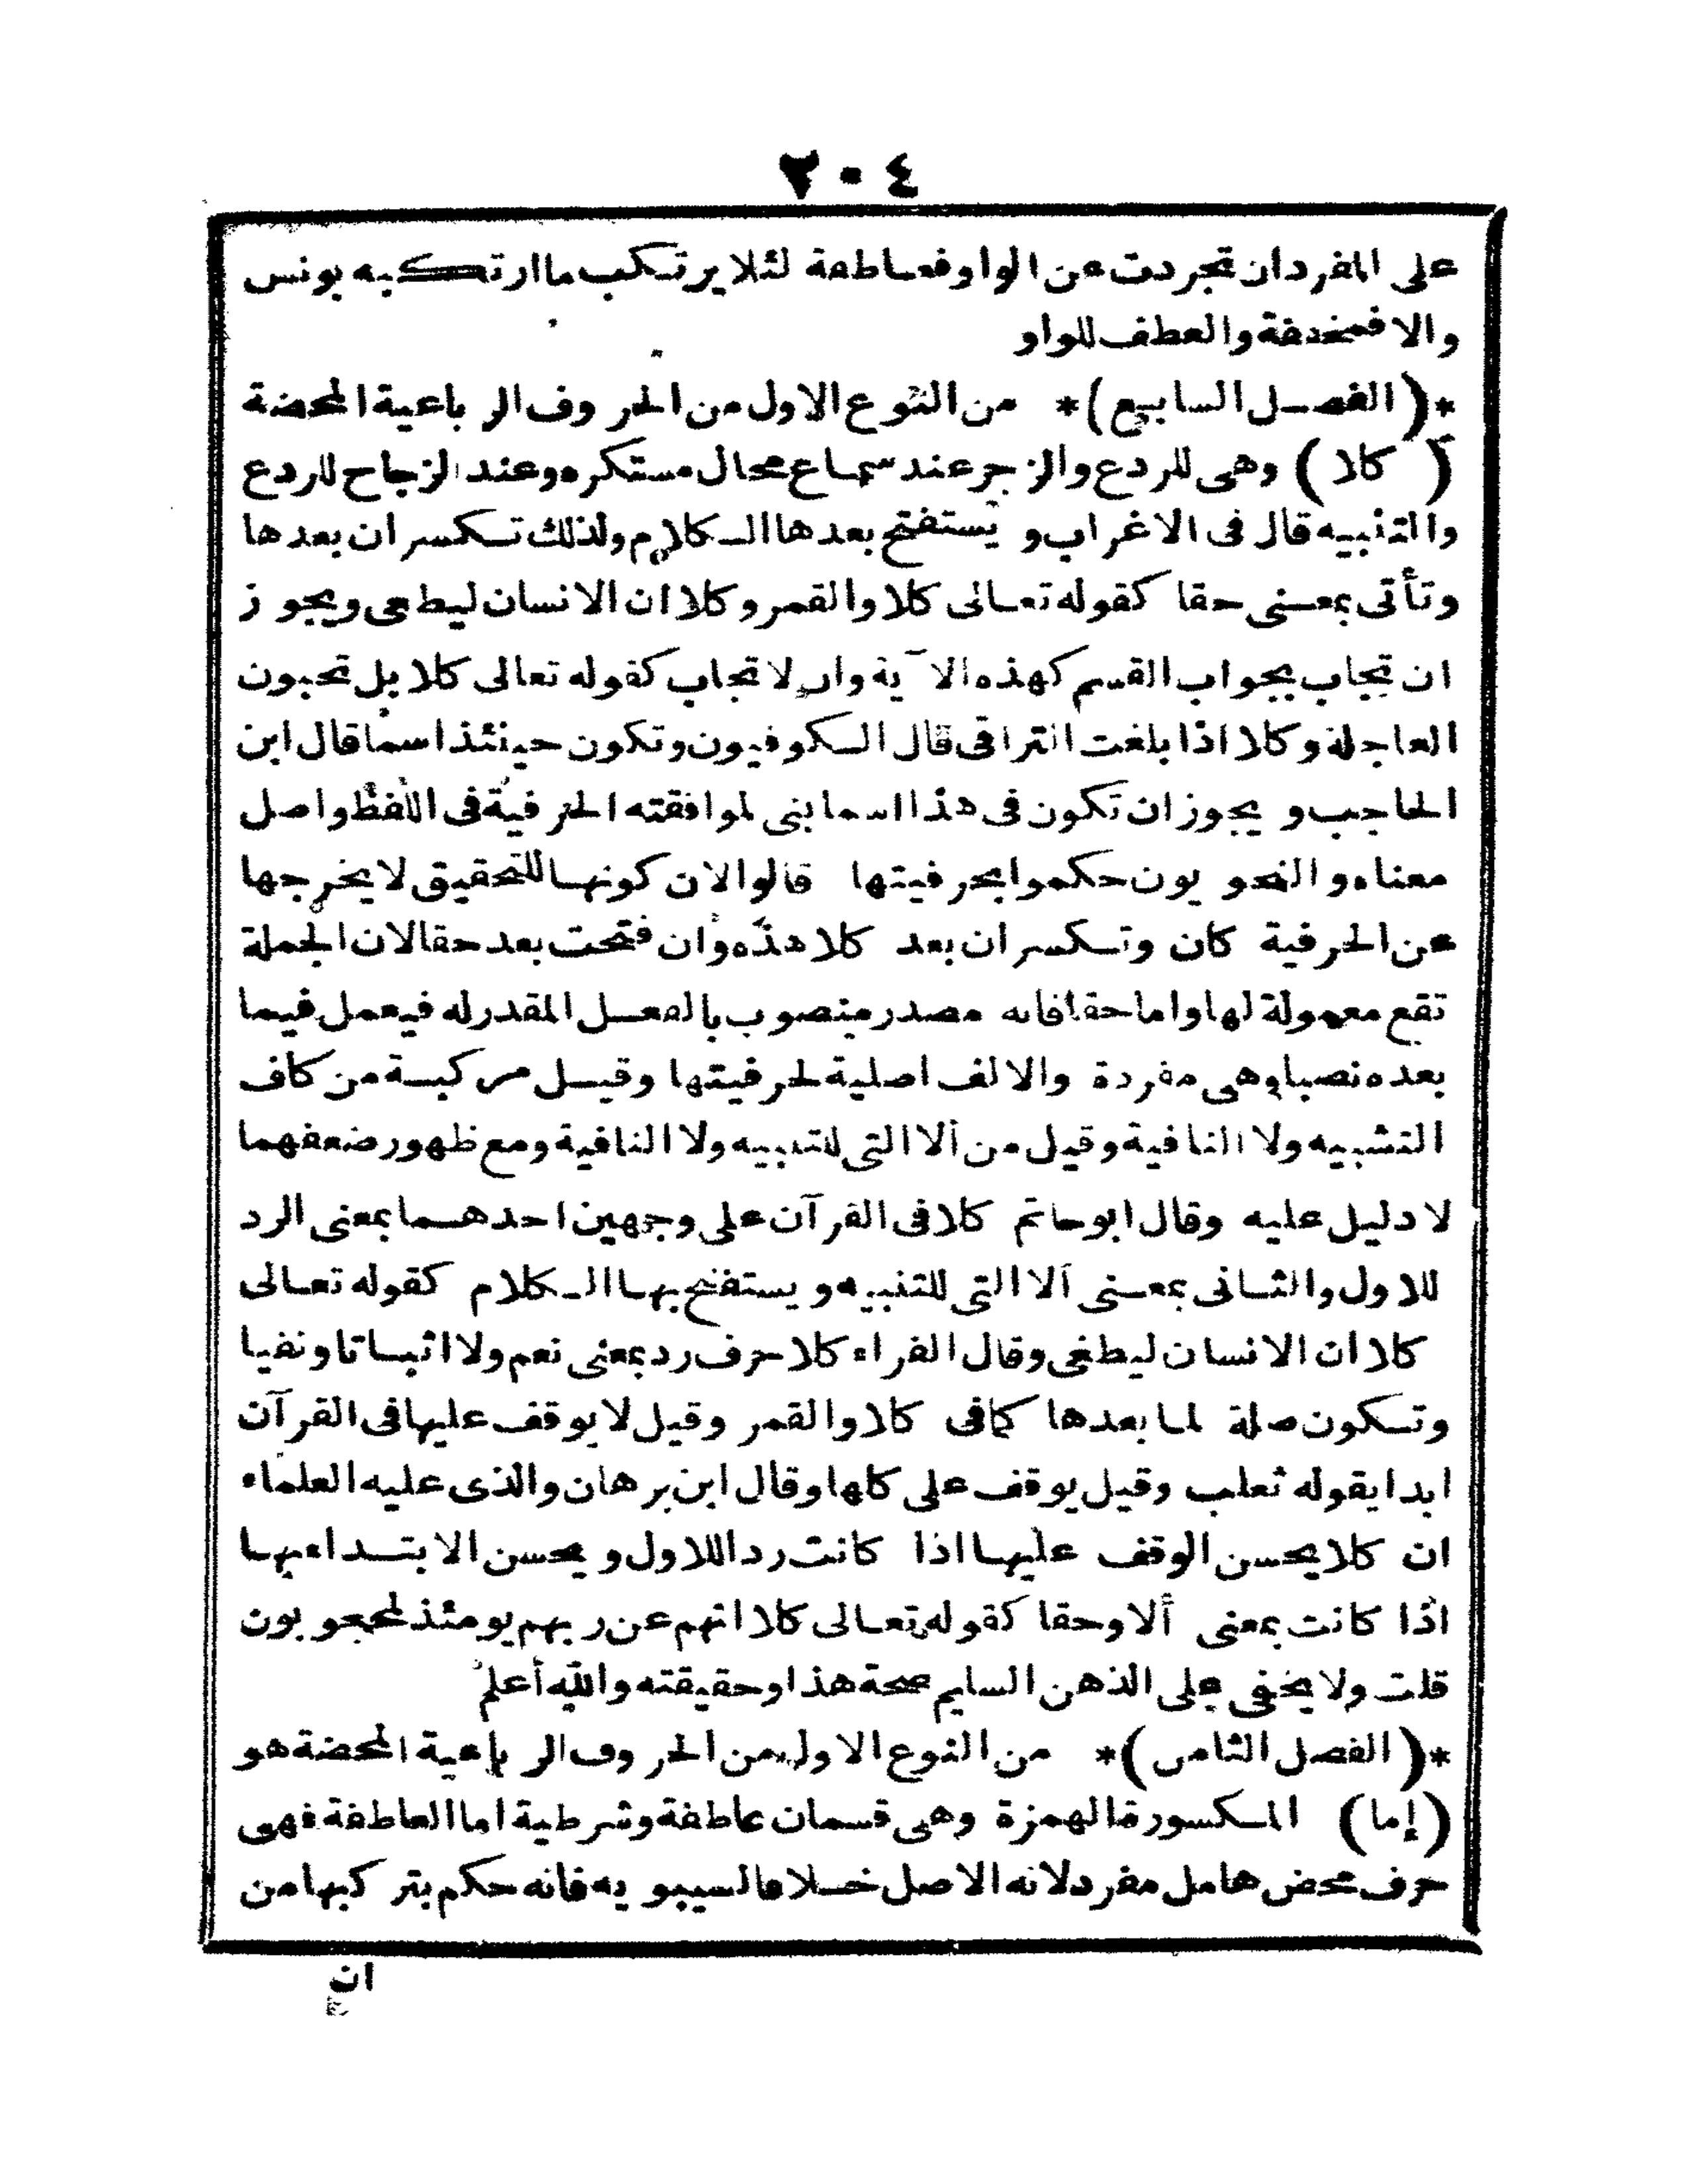 ٢٠٤
على المفردان تجردت عن الواو فعاطفة لئلا يرتكب ما ارتكبه يونس
والا فمخففة والعطف للواو
*(الفصل السابع)* من النوع الاول من الحروف الرباعية المحضة
(كلا) وهى للردع والزجر عند سماع محال مستكره وعند الزجاج للردع
والتنبيه قال فى الاغراب و يستفتح بعدها الكلام ولذلك تكسر ان بعدها
وتأتى بمعنى حقا كقوله تعالى كلا والقمر وكلا ان الانسان ليطغى ويجوز
ان تجاب بجواب القسم كهذه الآية وان لا تجاب كقوله تعالى كلا بل تحبون
العاجلة وكلا اذا بلغت التراقى قال الكوفيون وتكون حينئذ اسما قال ابن
الحاجب و يجوز ان تكون فى هذا اسما بنى لموافقته الحرفية فى اللفظ واصل
معناه والنحويون حكموا بحرفيتها قالوا لان كونها للتحقيق لا يخرجها
عن الحرفية كان وتكسر ان بعد كلا هذه وان فتحت بعد حقا لان الجملة
تقع معمولة لها واما حقا فانه مصدر منصوب بالفعل المقدر له فيعمل فيما
بعده نصبا وهى مفردة والالف اصلية لحرفيتها وقيل مركبة من كاف
التشبيه ولا النافية وقيل من ألا التى للتنبيه ولا النافية ومع ظهور ضعفهما
لا دليل عليه وقال ابو حاتم كلا فى القرآن على وجهين احدهما بمعنى الرد
للاول والثانى بمعنى ألا التى للتنبيه و يستفتح بها الكلام كقوله تعالى
كلا ان الانسان ليطغى وقال الفراء كلا حرف رد بمعنى نعم ولا اثباتا ونفيا
وتكون صلة لما بعدها كما فى كلا والقمر وقيل لا يوقف عليها فى القرآن
ابدا يقوله ثعلب وقيل يوقف على كلها وقال ابن برهان والذى عليه العلماء
ان كلا يحسن الوقف عليها اذا كانت ردا للاول و يحسن الابتداء بها
اذا كانت بمعنى ألا وحقا كقوله تعالى كلا انهم عن ربهم يومئذ لمحجوبون
قلت ولا يخفى على الذهن السليم صحة هذا وحقيقته والله أعلم
*(الفصل الثامن)* من النوع الاول من الحروف الرباعية المحضة هو
(إما) المكسورة الهمزة وهى قسمان عاطفة وشرطية اما العاطفة فهى
حرف محض هامل مفرد لانه الاصل خلافا لسيبويه فانه حكم بتركبها من
ان